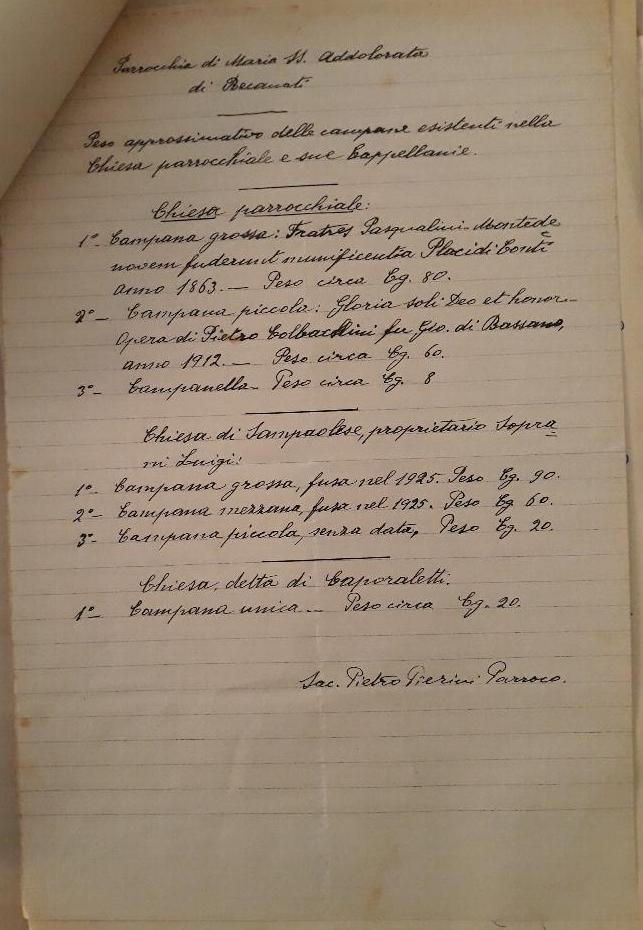 Parrocchia di Maria SS. Addolorata
di Recanati
Peso approssimativo delle campane esistenti nella
Chiesa parrocchiale e sue Cappellanie.
Chiesa parrocchiale:
1º- Campana grossa: Fratres Pasqualini Montede
novem fuderunt munificentia Placidi Conti
anno 1863. — Peso circa Cg. 80.
2º- Campana piccola: Gloria soli Deo et honor-
Opera di Pietro Colbachini fu Gio. di Bassano,
anno 1912. — Peso circa Cg. 60.
3º- Campanella- Peso circa Cg. 8
Chiesa di Sampaolese, proprietario Sopra=
ni Luigi:
1º- Campana grossa, fusa nel 1925. Peso Cg. 90.
2º- Campana mezzana, fusa nel 1925. Peso Cg 60.
3º- Campana piccola, senza data, Peso Cg. 20.
Chiesa, detta di Caporaletti.
1º- Campana unica — Peso circa Cg. 20.
Sac. Pietro Pierini Parroco.